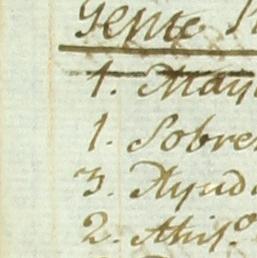 Gente
1. May
1. Sobre
3. Ayud
2.